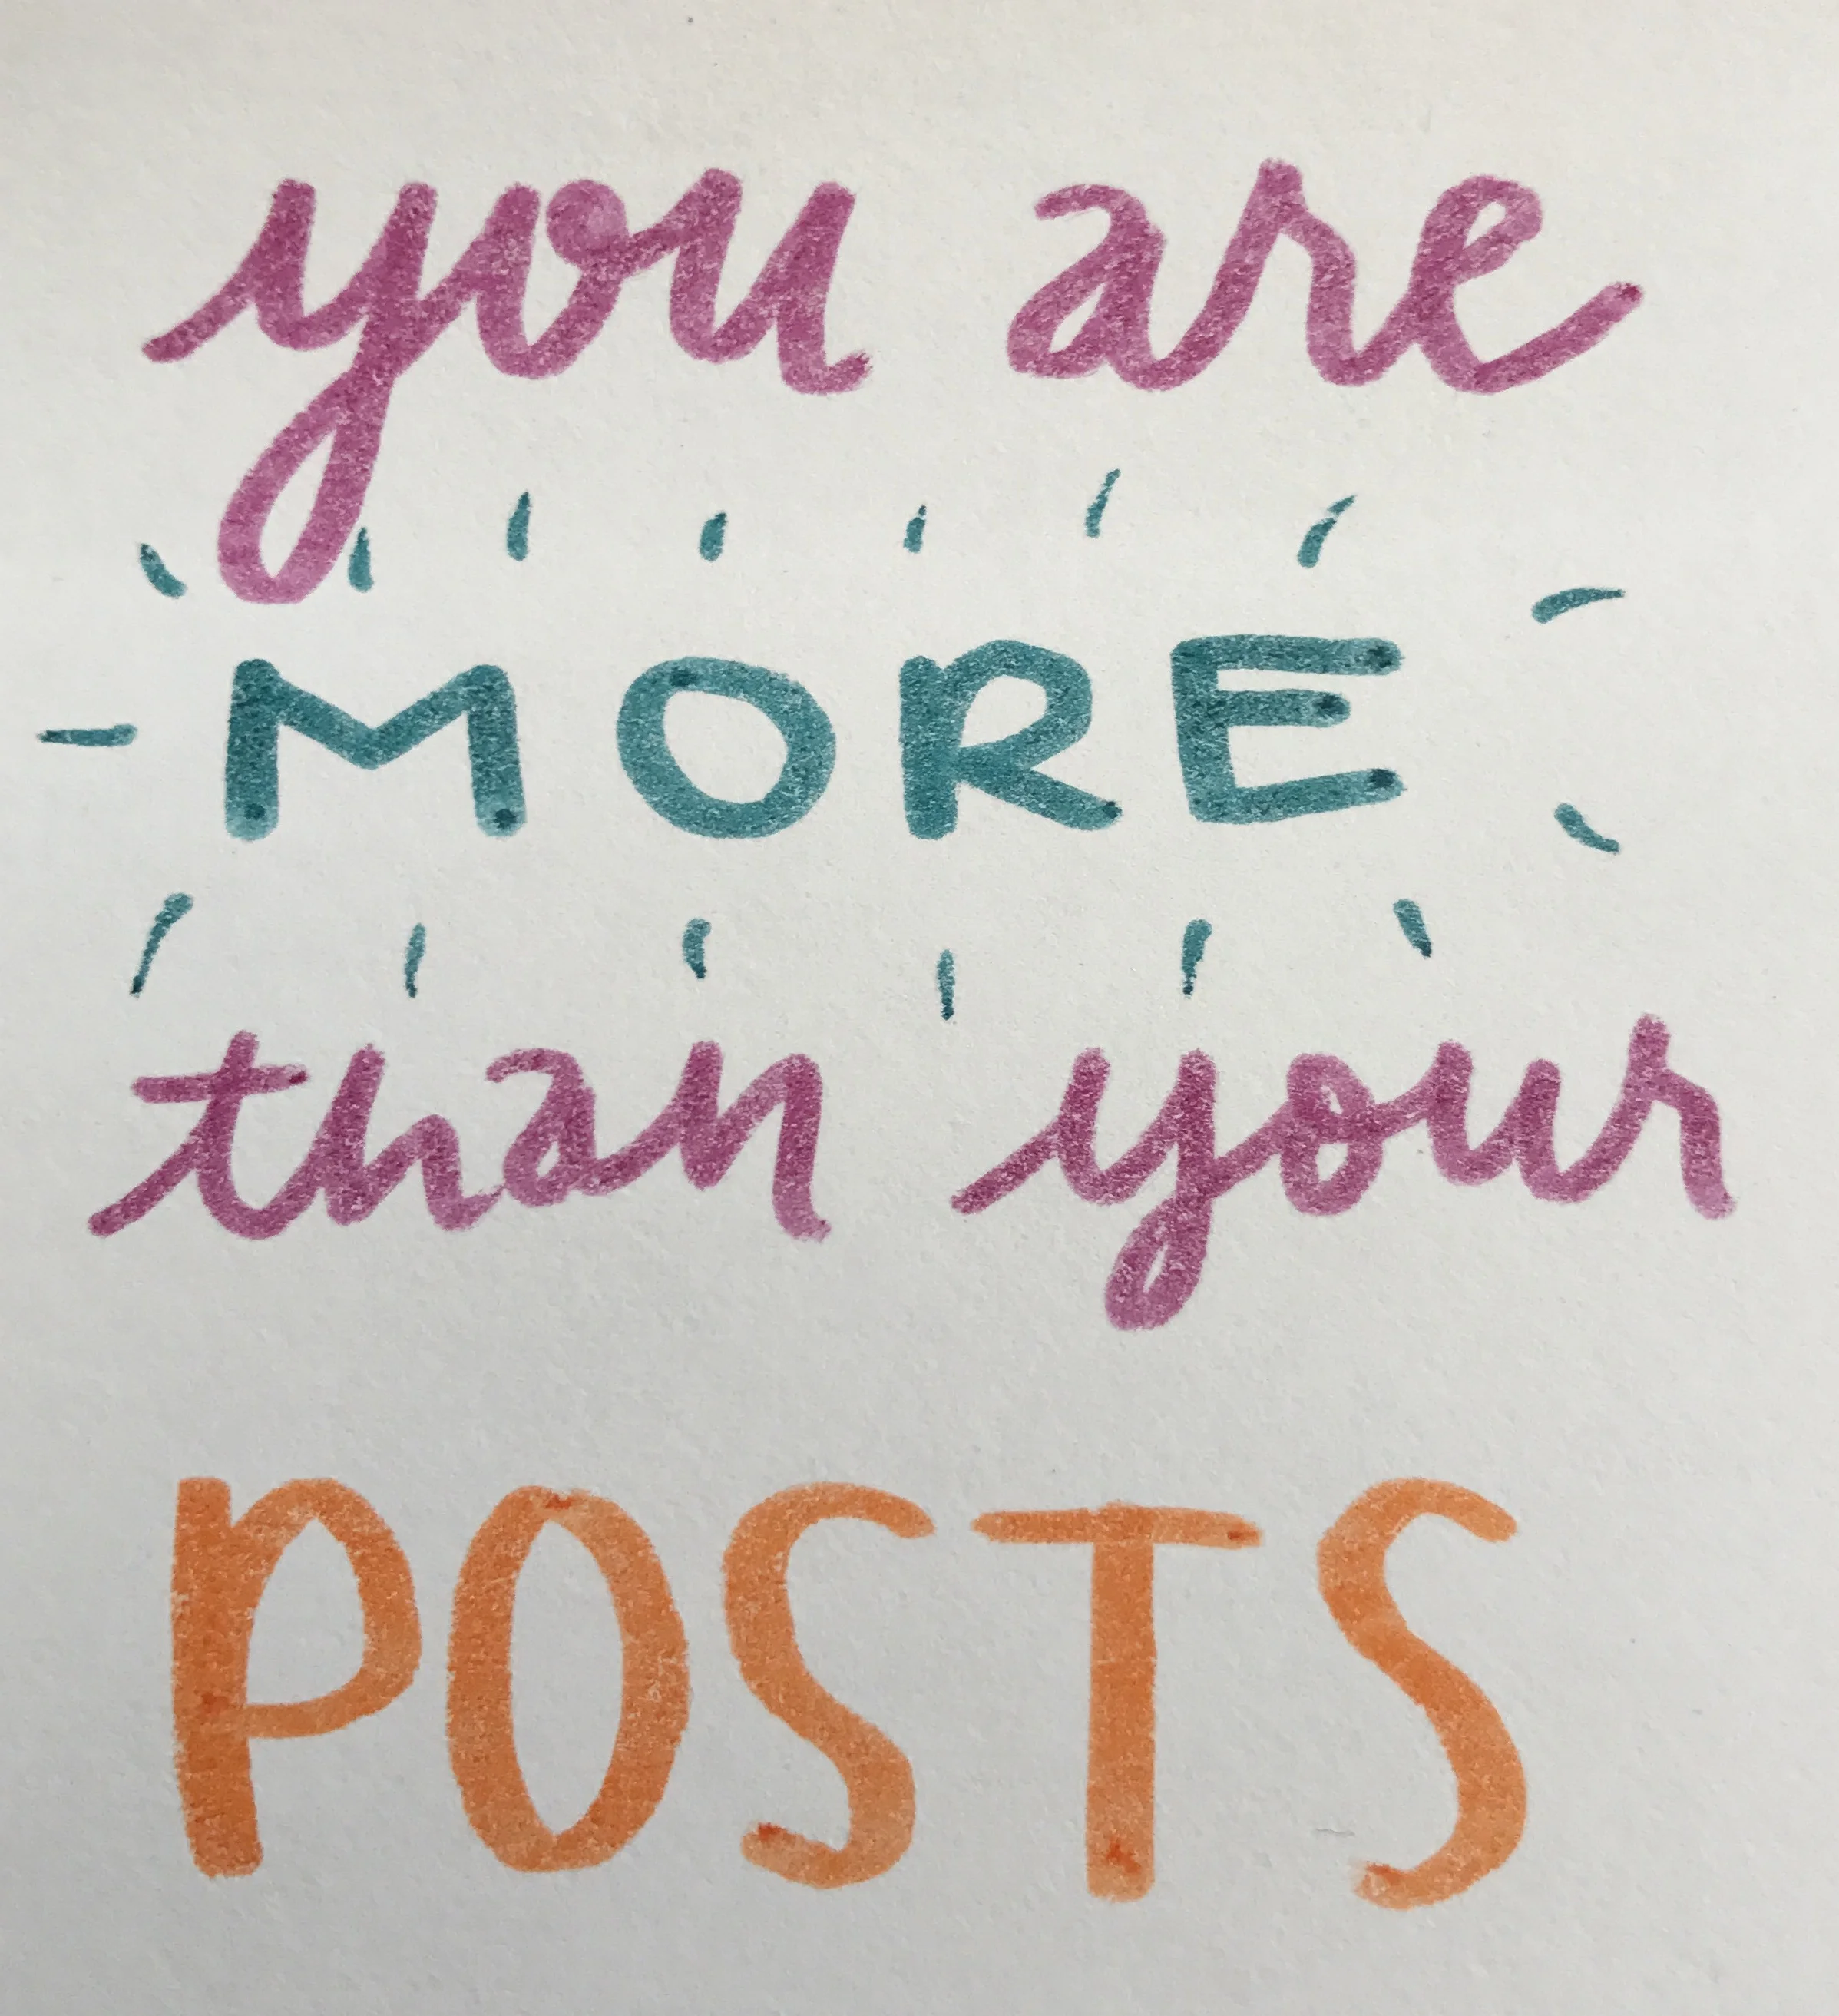 you are
MORE
than your
POSTS